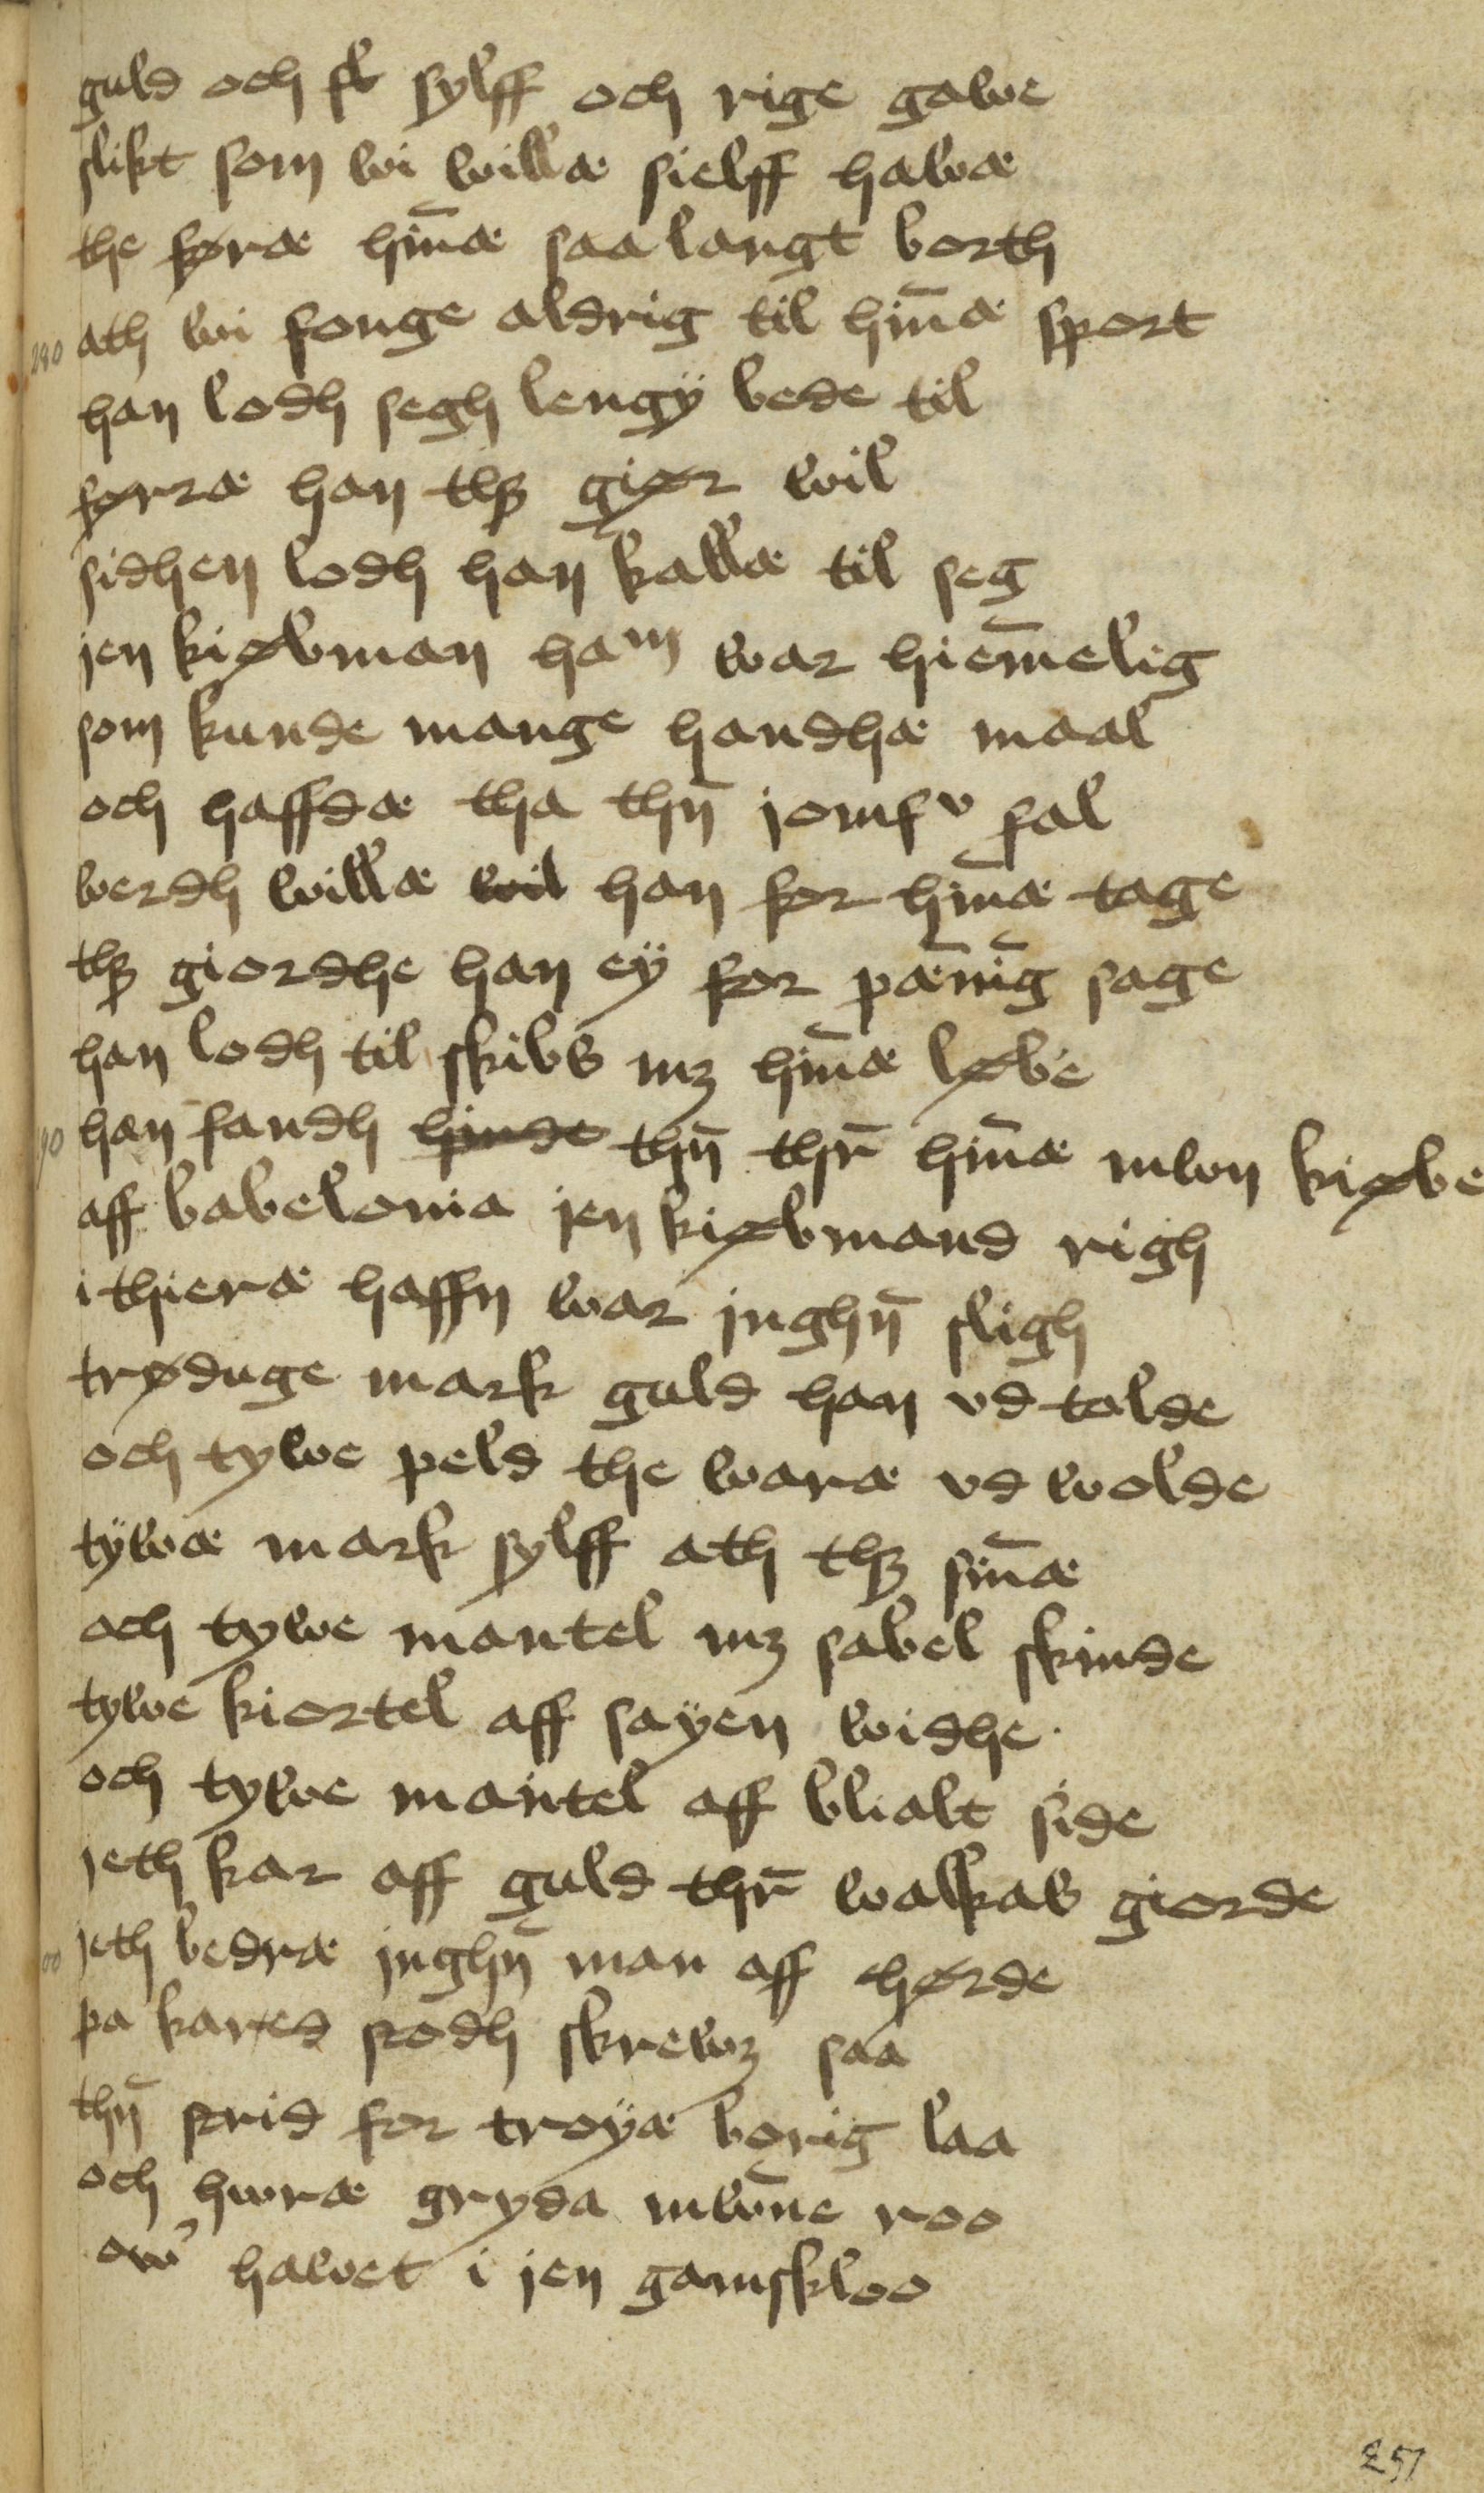 guld och sl sylff och rige gawe
slikt som wi willæ sielff hawæ
the føræ hin̄æ saa langt borth
240 ath wi fonge aldrig til hin̄æ sport
han lodh segh lengÿ bede til
førræ han thꝫ giør wil
sidhen lodh han kallæ til seg
jen kiøbman ham war hiem̄elig
som kunde mange handhæ maal
och haffdæ tha thn̄ jomfv fal
werdh willæ wil han for hin̄æ tage
thꝫ giordhe han eÿ for pæn̄ig sage
han lodh til skibs mꝫ hin̄æ løbe
90 han fandh hinde thn̄ thr̄ hin̄æ mwn kiøbe
aff babelonia jen kiøbmand righ
i thieræ haffn war jnghn̄ sligh
trøduge mark guld han vd tolde
och tywe peld the waræ vd wolde
tÿwæ mark sylff ath thꝫ sin̄æ
och tywe mantel mꝫ sabel skinde
tywe kiortel aff sayen widhe
och tywe mantel aff blialt side
jeth kar aff guld thr̄ walkas giorde
00 jeth bedræ jnghn̄ man aff hørde
pa kared stodh skrewꝫ saa
thn̄ strid for troÿæ borig laa
och hwræ gryda mwn̄e roo
ow' hawet i jen gamskloo
251